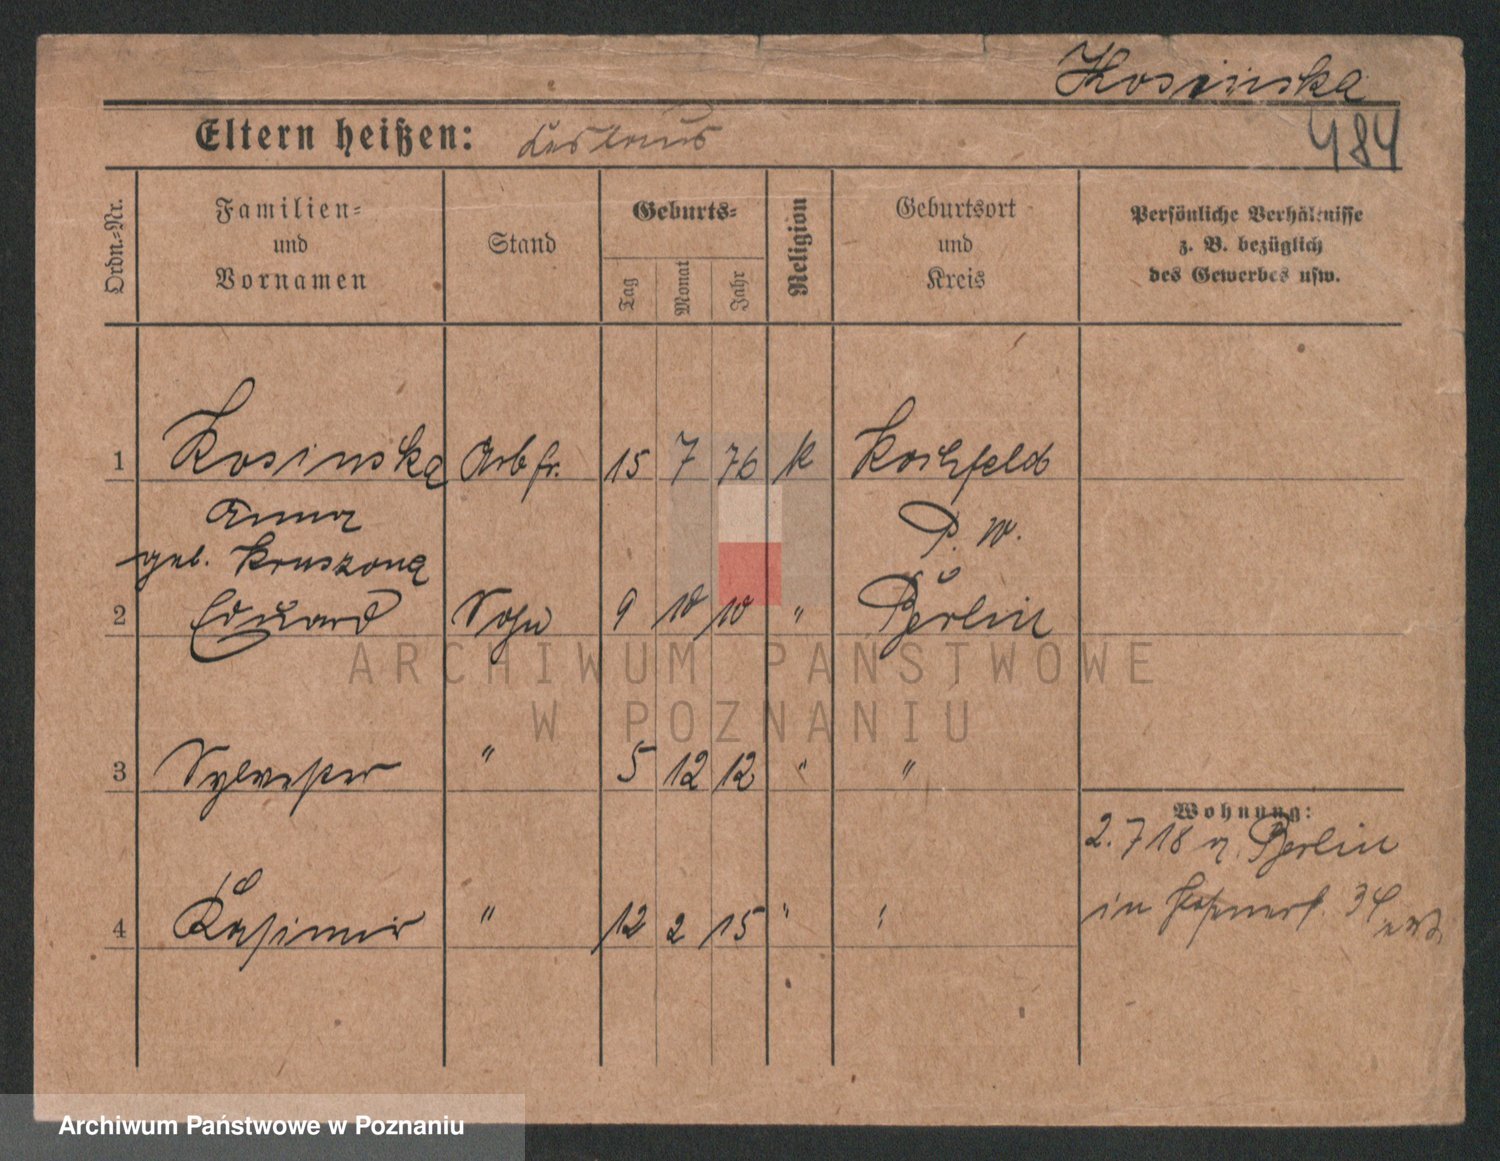 Kosinska
Eltern heißen:
484
Ordn.-Nr.
Familien- und Vornamen
Stand
Geburts-
Tag
Monat
Jahr
Religion
Geburtsort und Kreis
Persönliche Verhältnisse z. B. bezüglich des Gewerbes usw.
1 Kosinska Arbfr. 15 7 76 k Kochfeld
Anna P. W.
geb. Kruszona
2 Eduard Sohn 9 10 10 " Berlin
ARCHIWUM PAŃSTWOWE
W POZNANIU
3 Sylvester " 5 12 12 " "
Wohnung:
2. 7 18 n. Berlin
4 Kasimir " 12 2 15 " "
in 34
Archiwum Państwowe w Poznaniu